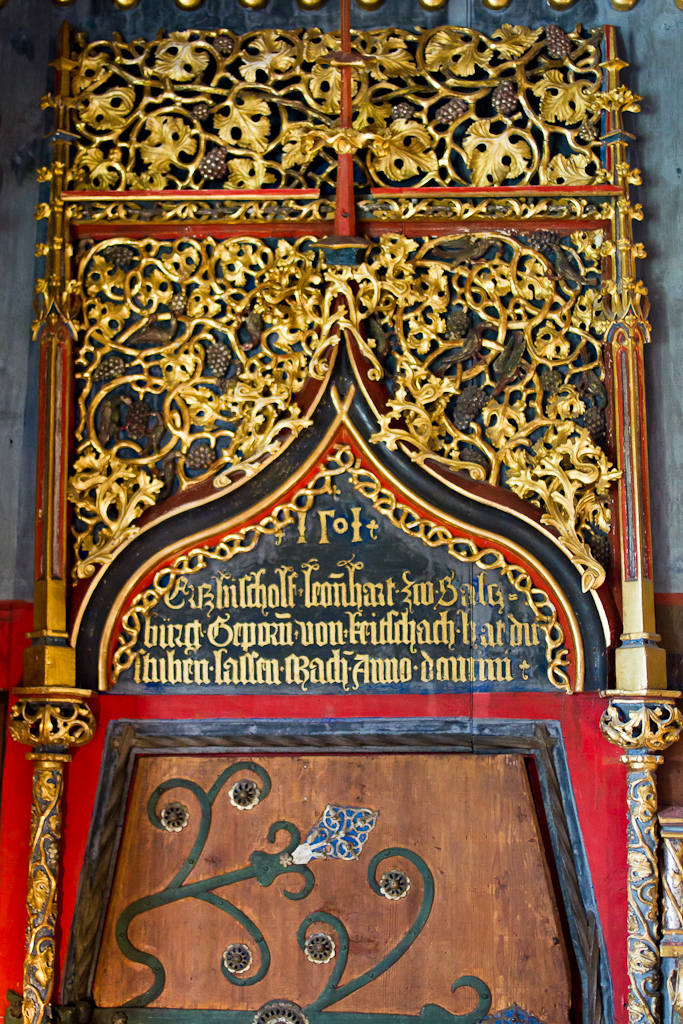 1501
Ertzbischolf leonhart zw Saltz=
bürg Geporn̄ von keitschach hat die
stuben lassen Mach̄n Anno domini